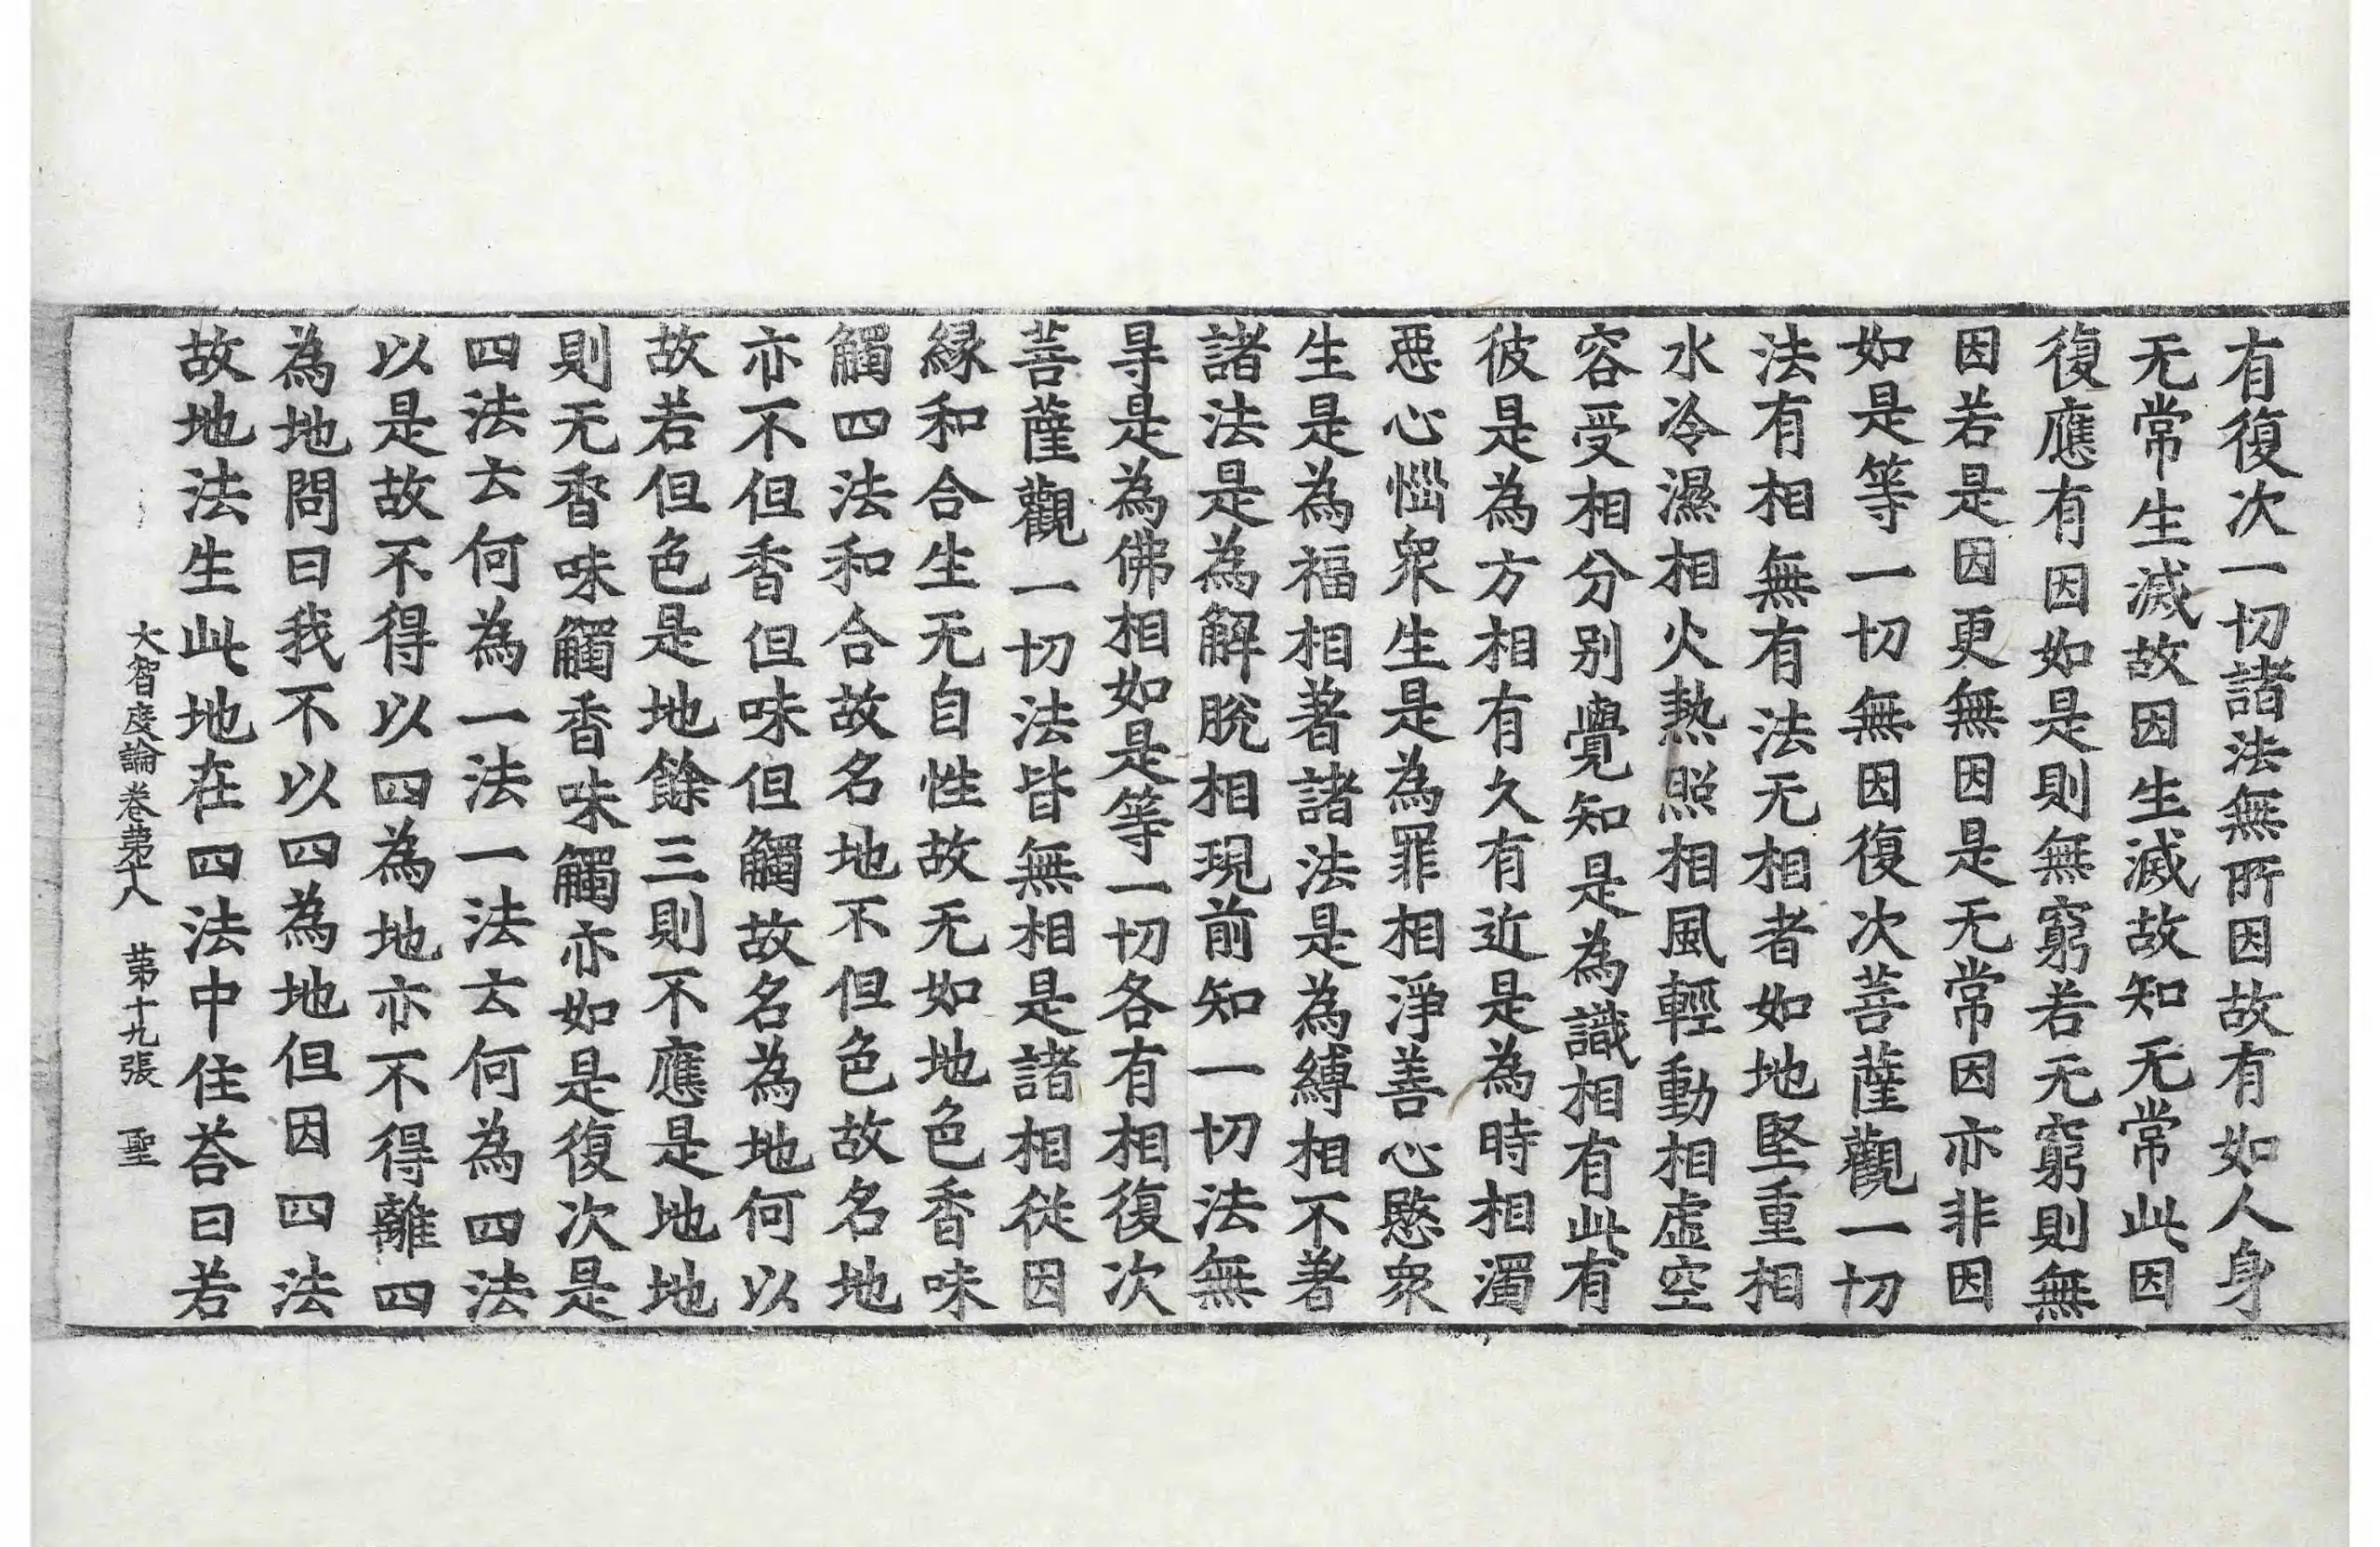 有復次一切諸法無所因故有如人身
无常生滅故因生滅故知无常此因
復應有因如是則無窮若无窮則無
因若是因更無因是无常因亦非因
如是等一切無因復次菩薩觀一切
法有相無有法无相者如地堅重相
水冷濕相火熱照相風輕動相虛空
容受相分別覺知是為識相有此有
彼是為方相有久有近是為時相濁
惡心惱衆生是為罪相淨善心愍衆
生是為福相著諸法是為縛相不著
諸法是為解脫相現前知一切法無
㝵是為佛相如是等一切各有相復次
菩薩觀一切法皆無相是諸相從因
緣和合生无自性故无如地色香味
觸四法和合故名地不但色故名地
亦不但香但味但觸故名為地何以
故若但色是地餘三則不應是地地
則无香味觸香味觸亦如是復次是
四法云何為一法一法云何為四法
以是故不得以四為地亦不得離四
為地問曰我不以四為地但因四法
故地法生此地在四法中住荅曰若
大智度論卷第十八 第十九張 聖